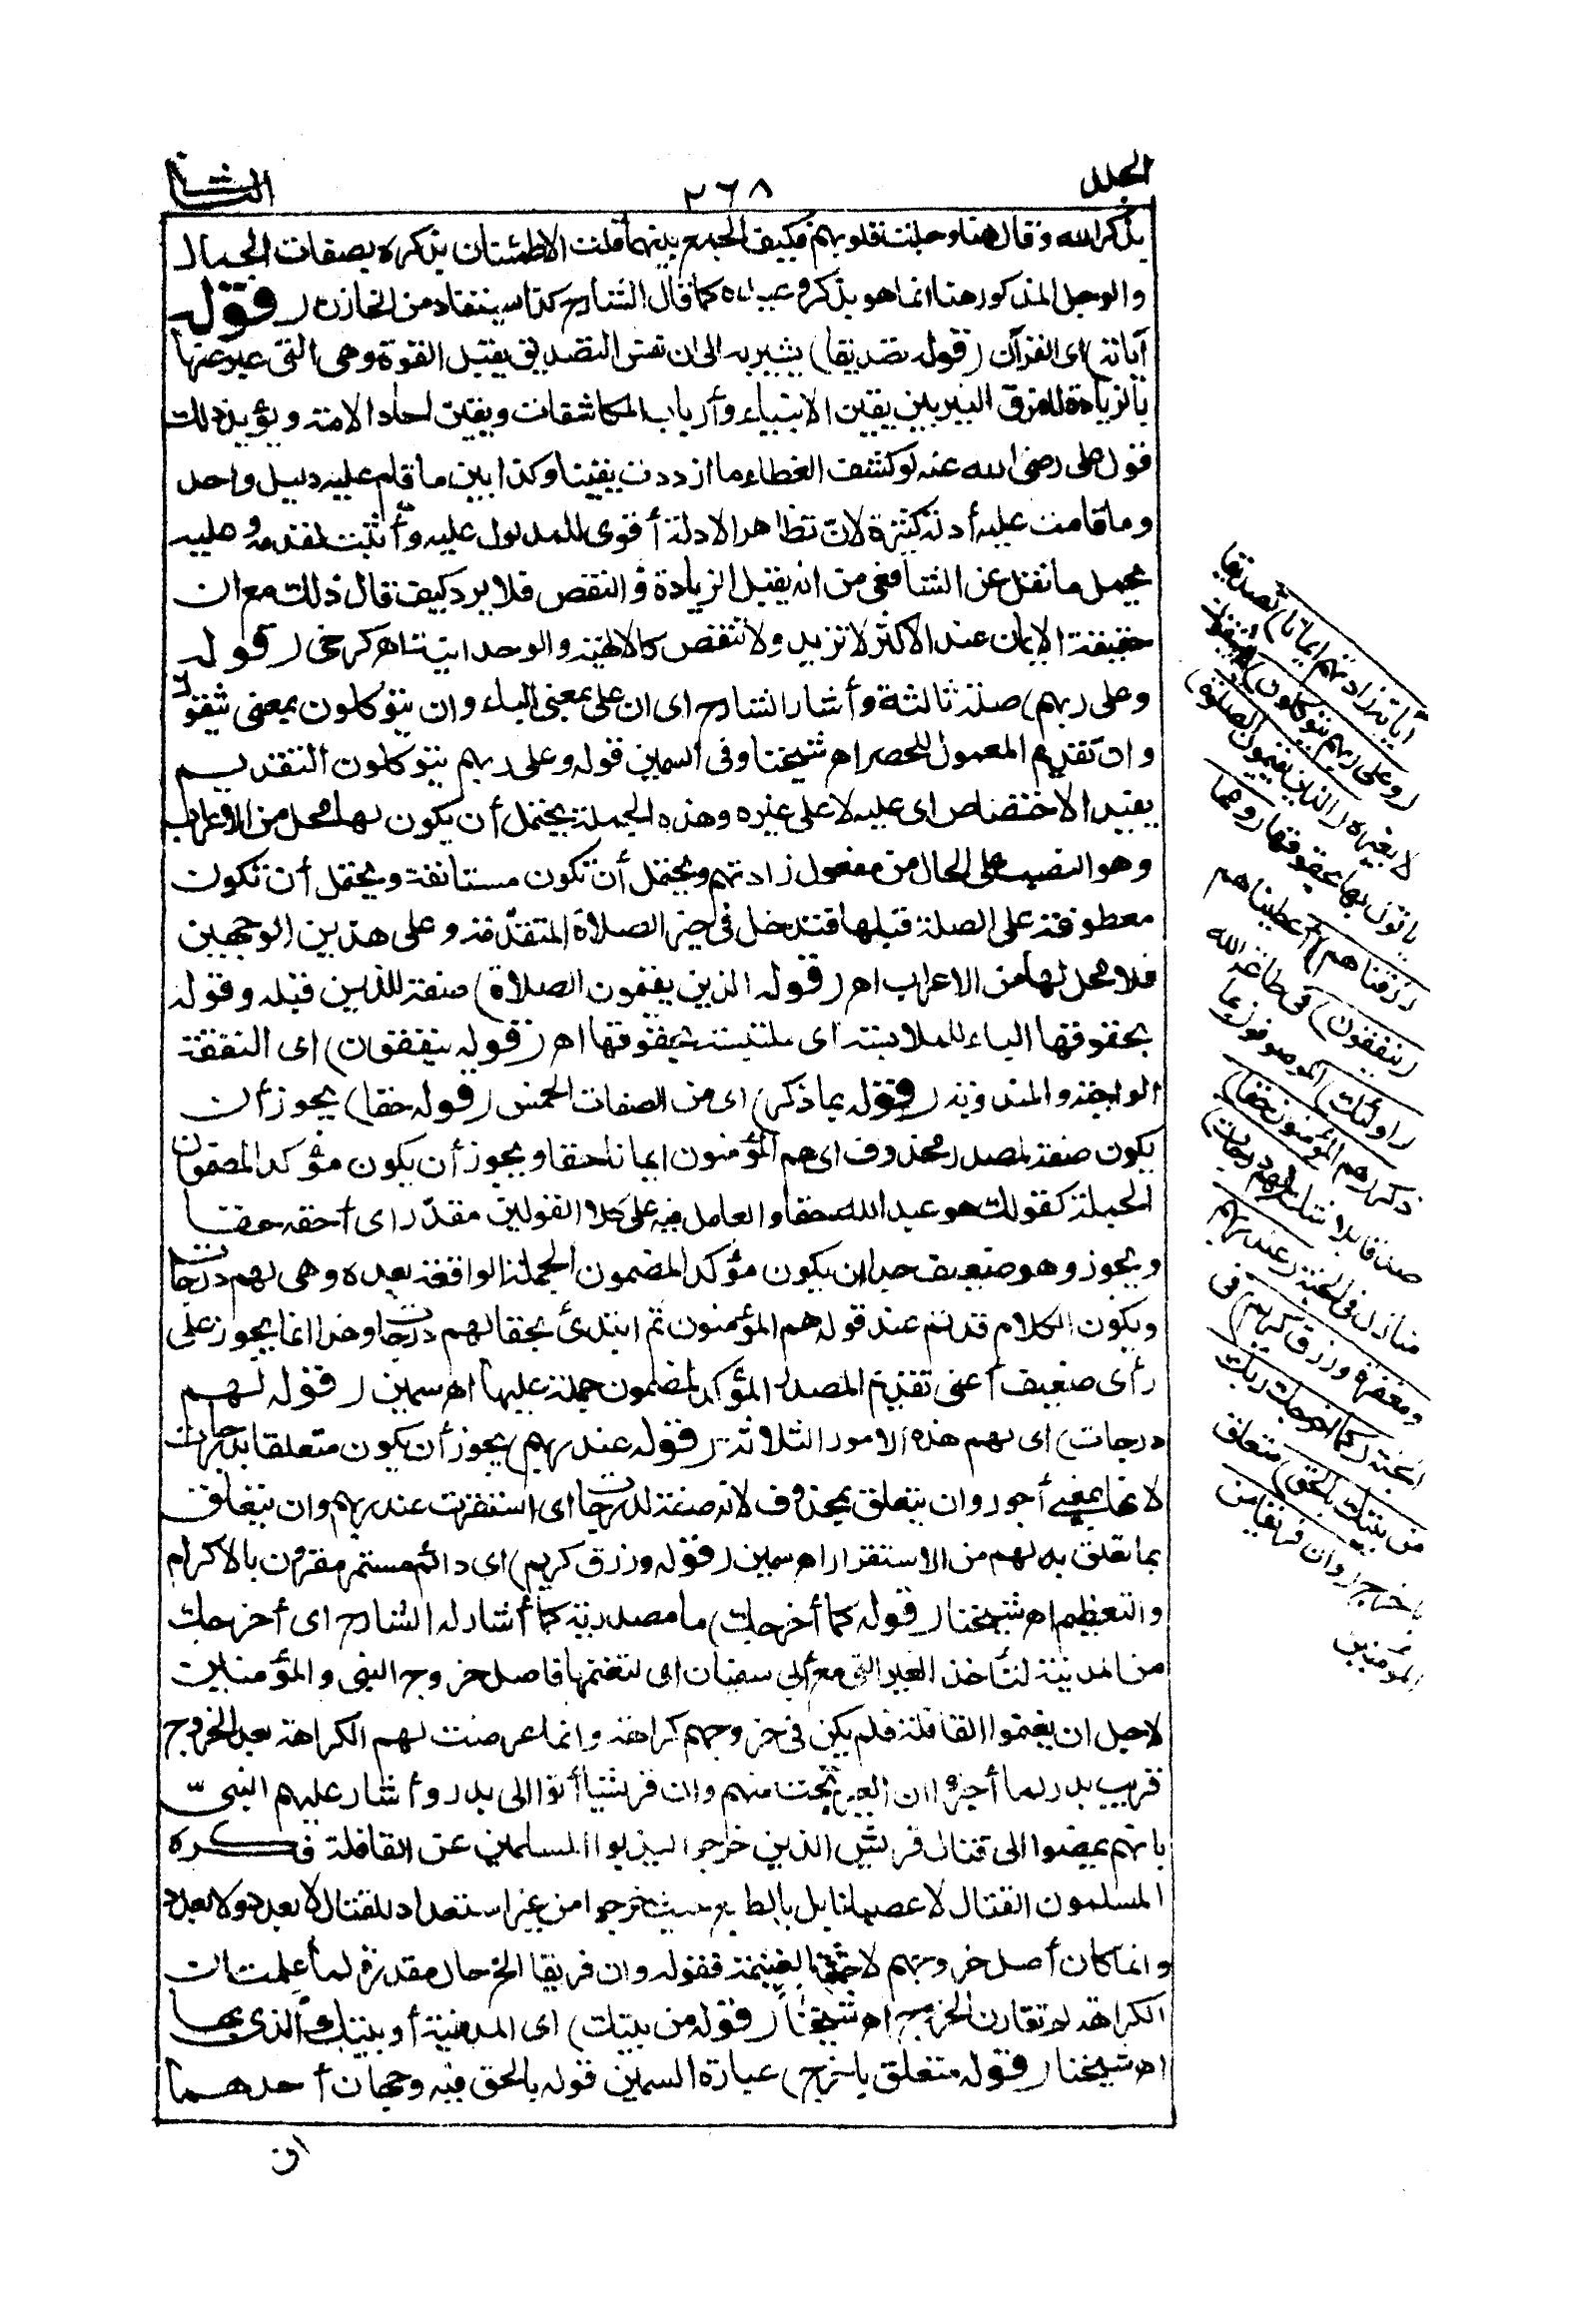 المجلد
٢٦٨
الثاني
بذكر الله وقال هنا وجلت قلوبهم فكيف الجمع بينهما قلت الاطمئنان بذكره بصفات الجمال
والوجل المذكور هنا انما هو بذكر وعيده كما قال الشارح كذا يستفاد من الخازن (قوله
آياته) اى القرآن (قوله تصديقا) يشير به الى ان نفس التصديق يقبل القوة وهى التى عبر عنها
بالزيادة للفرق البين بين يقين الانبياء وأرباب المكاشفات ويقين احاد الامة ويؤيد ذلك
قول على رضى الله عنه لو كشف الغطاء ما ازددت يقينا وكذا بين ما قام عليه دليل واحد
وما قامت عليه أدلة كثيرة لان تظاهر الادلة أقوى للمدلول عليه وأثبت لقدمه وعليه
يحمل ما نقل عن الشافعى من انه يقبل الزيادة والنقص فلا يرد كيف قال ذلك مع ان
حقيقة الايمان عند الاكثر لا تزيد ولا تنقص كالالهية والوحدانية اهـ كرخى (قوله
وعلى ربهم) صلة ثالثة وأشار الشارح اى ان على بمعنى الباء وان يتوكلون بمعنى يثقون
وان تقديم المعمول للحصر اهـ شيخنا وفى السمين قوله وعلى ربهم يتوكلون التقديم
يفيد الاختصاص اى عليه لا على غيره وهذه الجملة يحتمل أن يكون لها محل من الاعراب
وهو النصب على الحال من مفعول زادتهم ويحتمل أن تكون مستانفة ويحتمل أن تكون
معطوفة على الصلة قبلها فتدخل فى حيز الصلاة المتقدّمة وعلى هذين الوجهين
فلا محل لها من الاعراب اهـ (قوله الذين يقيمون الصلاة) صفة للذين قبله وقوله
بحقوقها الباء للملابسة اى ملتبسة بحقوقها اهـ (قوله ينفقون) اى النفقة
الواجبة والمندوبة (قوله بما ذكر) اى من الصفات الخمس (قوله حقا) يجوز أن
يكون صفة لمصدر محذوف اى هم المؤمنون ايمانا حقا ويجوز أن يكون مؤكد المضمون
الجملة كقولك هو عبد الله حقا والعامل فيه على كلا القولين مقدّر اى أحقه حقا
ويجوز وهو ضعيف جدا ان يكون مؤكدا لمضمون الجملة الواقعة بعده وهى لهم درجات
ويكون الكلام قد تم عند قوله هم المؤمنون ثم ابتدئ بحقا لهم درجات وهذا انما يجوز على
رأى ضعيف أعنى تقديم المصدر المؤكد لمضمون جملة عليها اهـ سمين (قوله لهم
درجات) اى لهم هذه الامور الثلاثة (قوله عند ربهم) يجوز أن يكون متعلقا بدرجات
لانها بمعنى أجور وان يتعلق بمحذوف لانه صفة لدرجات اى استقرت عند ربهم وان يتعلق
بما تعلق به لهم من الاستقرار اهـ سمين (قوله ورزق كريم) اى دائم مستمر مقرون بالاكرام
والتعظيم اهـ شيخنا (قوله كما أخرجك) ما مصدرية كما أشار له الشارح اى أخرجك
من المدينة لتأخذ العير التى مع أبى سفيان اى لتغنمها فاصل خروج النبى والمؤمنين
لاجل ان يغنموا القافلة فلم يكن فى خروجهم كراهة وانما عرضت لهم الكراهة بعد الخروج
قريب بدر لما أخبروا ان العير نجت منهم وان قريشا أتوا الى بدر وأشار عليهم النبىّ
بانهم يمضوا الى قتال قريش الذين خرجوا ليذبوا المسلمين عن القافلة فكره
المسلمون القتال لا عصيانا بل بالطبع حيث خرجوا من غير استعداد للقتال لا بعدد ولا بعدد
وانما كان أصل خروجهم لاخذ الغنيمة فقوله وان فريقا الخ حال مقدرة لما علمت ان
الكراهة لم تقارن الخروج اهـ شيخنا (قوله من بيتك) اى المدينة أو بيتك الذى بها
اهـ شيخنا (قوله متعلق باخرج) عبارة السمين قوله بالحق فيه وجهان أحدهما
ان
آياته زادتهم ايمانا) تصديقا
(وعلى ربهم يتوكلون) به يثقون
لا بغيره (الذين يقيمون الصلوة)
ياتون بها بحقوقها (ومما
رزقناهم) أعطيناهم
(ينفقون) فى طاعة الله
(اولئك) الموصوفون بما
ذكر (هم المؤمنون حقا)
صدقا بلا شك (لهم درجات)
منازل فى الجنة (عند ربهم
ومغفرة ورزق كريم) فى
الجنة (كما اخرجك ربك
من بيتك بالحق) متعلق
باخرج (وان فريقا من
المؤمنين